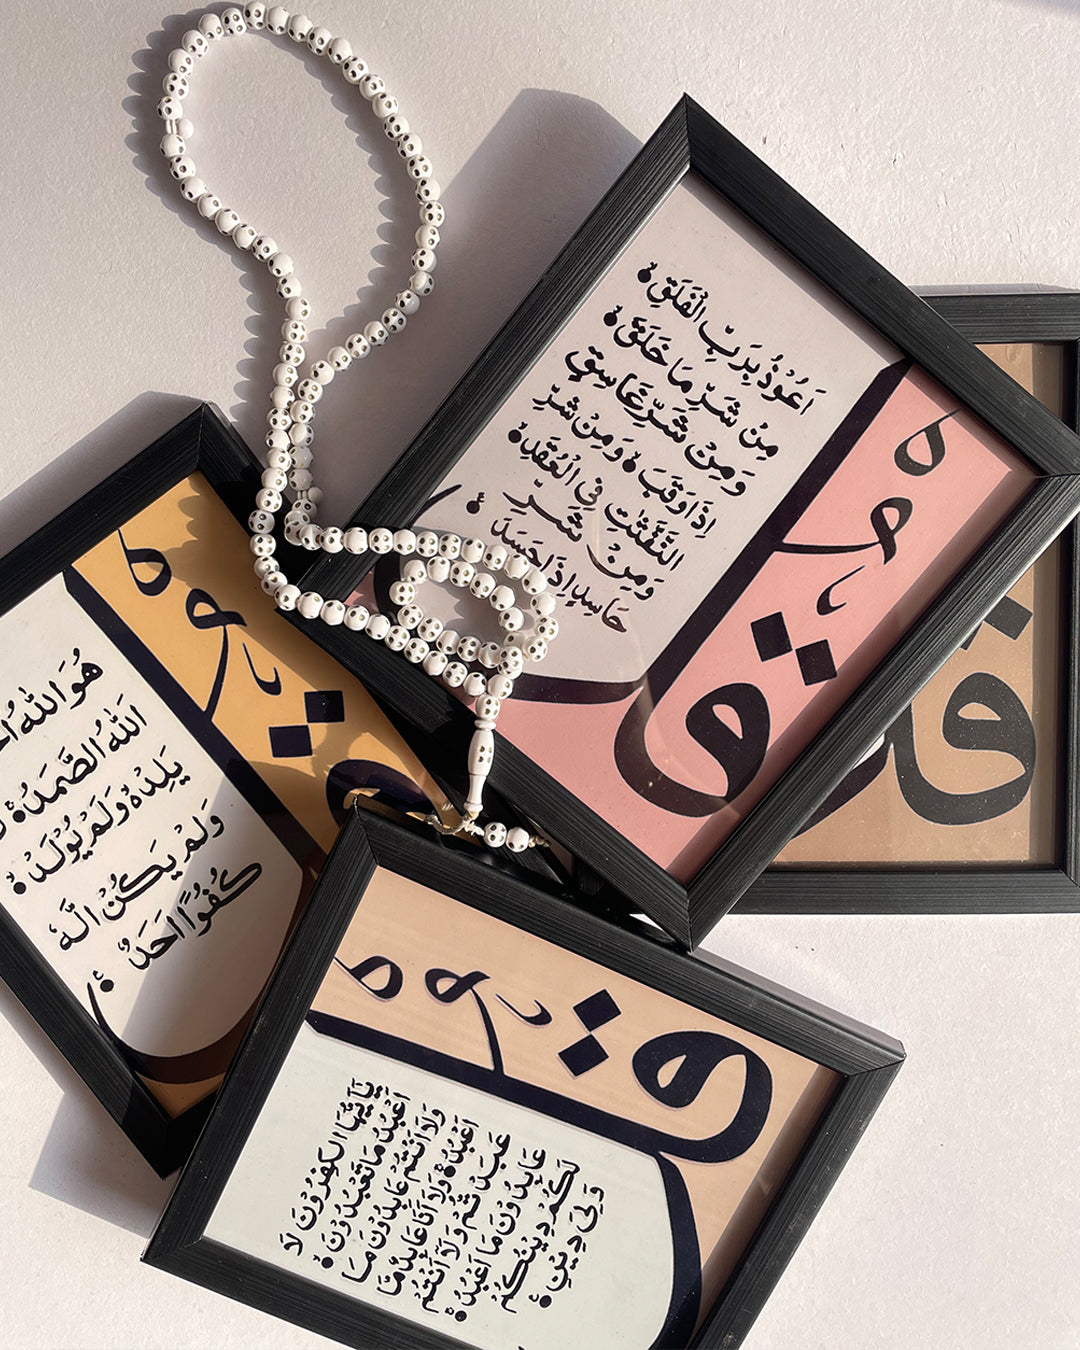 قل
اَعُوْذُ بِرَبِّ الْفَلَقِ
مِنْ شَرِّ مَا خَلَقَ
وَمِنْ شَرِّ غَاسِقٍ
اِذَا وَقَبَ وَمِنْ شَرِّ
النَّفّٰثٰتِ فِی الْعُقَدِ
وَمِنْ شَرِّ
حَاسِدٍ اِذَا حَسَدَ
قل
هُوَ اللّٰهُ
اَللّٰهُ الصَّمَدُ
يَلِدْ وَلَمْ يُوْلَدْ
وَلَمْ يَكُنْ لَّهٗ
كُفُوًا اَحَدٌ
قل
يٰۤاَيُّهَا الْكٰفِرُوْنَ لَا
اَعْبُدُ مَا تَعْبُدُوْنَ
وَلَا اَنْتُمْ عَابِدُوْنَ مَا
اَعْبُدُ وَلَا اَنَا عَابِدٌ مَّا
عَبَدْتُّمْ وَلَا اَنْتُمْ
عَابِدُوْنَ مَا اَعْبُدُ
لَكُمْ دِيْنُكُمْ
وَلِيَ دِيْنِ